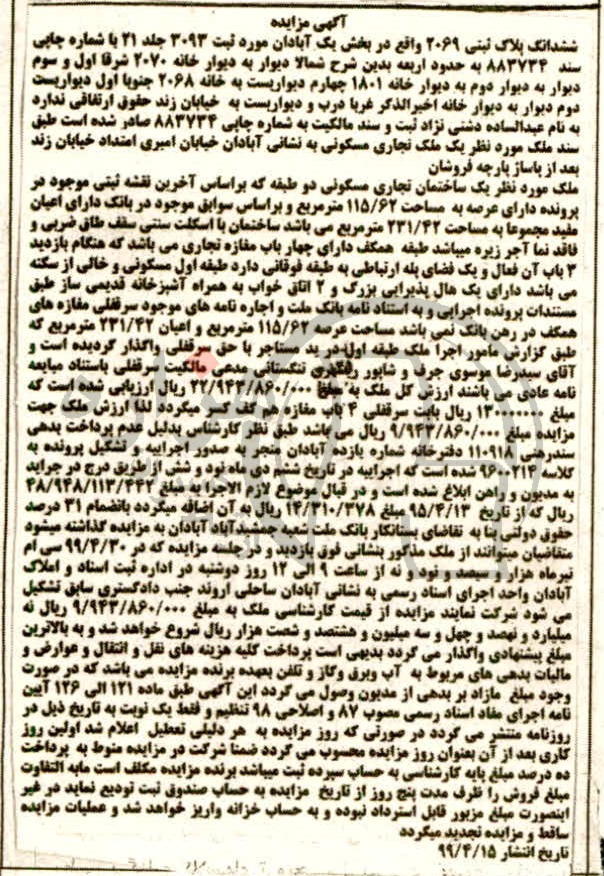 آگهی مزایده
ششدانگ پلاک ثبتی ۲۰۶۹ واقع در بخش یک آبادان مورد ثبت ۳۰۹۳ جلد ۲۱ با شماره چاپی
سند ۸۸۳۷۳۴ به حدود اربعه بدین شرح شمالا دیوار به دیوار خانه ۲۰۷۰ شرقا اول و سوم
دیوار به دیوار دوم به دیوار خانه ۱۸۰۱ چهارم دیواریست به خانه ۲۰۶۸ جنوبا اول دیواریست
دوم دیوار به دیوار خانه اخیرالذکر غربا درب و دیواریست به خیابان زند حقوق ارتفاقی ندارد
به نام عبدالساده دشتی نژاد ثبت و سند مالکیت به شماره چاپی ۸۸۳۷۳۴ صادر شده است طبق
سند ملک مورد نظر یک ملک تجاری مسکونی به نشانی آبادان خیابان امیری امتداد خیابان زند
بعد از پاساژ پارچه فروشان
ملک مورد نظر یک ساختمان تجاری مسکونی دو طبقه که براساس آخرین نقشه ثبتی موجود در
پرونده دارای عرصه به مساحت ۱۱۵/۶۲ مترمربع و براساس سوابق موجود در بانک دارای اعیان
مفید مجموعا به مساحت ۲۳۱/۴۲ مترمربع می باشد ساختمان با اسکلت سنتی سقف طاق ضربی و
فاقد نما آجر زبره میباشد طبقه همکف دارای چهار باب مغازه تجاری می باشد که هنگام بازدید
۳ باب آن فعال و یک فضای پله ارتباطی به طبقه فوقانی دارد طبقه اول مسکونی و خالی از سکنه
می باشد دارای یک هال پذیرایی بزرگ و ۲ اتاق خواب به همراه آشپزخانه قدیمی ساز طبق
مستندات پرونده اجرایی و به استناد نامه بانک ملت و اجاره نامه های موجود سرقفلی مغازه های
همکف در رهن بانک نمی باشد مساحت عرصه ۱۱۵/۶۲ مترمربع و اعیان ۲۳۱/۴۲ مترمربع که
طبق گزارش مامور اجرا ملک طبقه اول در ید مستاجر با حق سرقفلی واگذار گردیده است و
آقای سیدرضا موسوی جرف و شاپور تنگستانی مدعی مالکیت سرقفلی باستناد مبایعه
نامه عادی می باشند ارزش کل ملک به مبلغ ۲۲/۹۴۳/۸۶۰/۰۰۰ ریال ارزیابی شده است که
مبلغ ۱۳۰۰۰۰۰۰ ریال بابت سرقفلی ۴ باب مغازه هم کف کسر میگردد لذا ارزش ملک جهت
مزایده مبلغ ۹/۹۴۳/۸۶۰/۰۰۰ ریال می باشد طبق نظر کارشناس بدلیل عدم پرداخت بدهی
سندرهنی ۱۱۰۹۱۸ دفترخانه شماره یازده آبادان منجر به صدور اجراییه و تشکیل پرونده به
کلاسه ۹۶۰۰۲۱۴ شده است که اجراییه در تاریخ ششم دی ماه نود و شش از طریق درج در جراید
به مدیون و راهن ابلاغ شده است و در قبال موضوع لازم الاجرا به مبلغ ۴۸/۹۴۸/۱۱۳/۴۴۲
ریال که از تاریخ ۹۵/۴/۱۳ مبلغ ۱۴/۳۱۰/۳۷۸ ریال به آن اضافه میگردد بانضمام ۳۱ درصد
حقوق دولتی بنا به تقاضای بستانکار بانک ملت شعبه جمشیدآباد آبادان به مزایده گذاشته میشود
متقاضیان میتوانند از ملک مذکور بنشانی فوق بازدید و در جلسه مزایده که در ۹۹/۴/۳۰ سی ام
تیرماه هزار و سیصد و نود و نه از ساعت ۹ الی ۱۲ روز دوشنبه در اداره ثبت اسناد و املاک
آبادان واحد اجرای اسناد رسمی به نشانی آبادان ساحلی اروند جنب دادگستری سابق تشکیل
می شود شرکت نمایند مزایده از قیمت کارشناسی ملک به مبلغ ۹/۹۴۳/۸۶۰/۰۰۰ ریال نه
میلیارد و نهصد و چهل و سه میلیون و هشتصد و شصت هزار ریال شروع خواهد شد و به بالاترین
مبلغ پیشنهادی واگذار می گردد بدیهی است پرداخت کلیه هزینه های نقل و انتقال و عوارض و
مالیات بدهی های مربوط به آب وبرق وگاز و تلفن بعهده برنده مزایده می باشد که در صورت
وجود مبلغ مازاد بر بدهی از مدیون وصول می گردد این آگهی طبق ماده ۱۲۱ الی ۱۲۶ آیین
نامه اجرای مفاد اسناد رسمی مصوب ۸۷ و اصلاحی ۹۸ تنظیم و فقط یک نوبت به تاریخ ذیل در
روزنامه منتشر می گردد در صورتی که روز مزایده به هر دلیلی تعطیل اعلام شد اولین روز
کاری بعد از آن بعنوان روز مزایده محسوب می گردد ضمنا شرکت در مزایده منوط به پرداخت
ده درصد مبلغ پایه کارشناسی به حساب سپرده ثبت میباشد برنده مزایده مکلف است مابه التفاوت
مبلغ فروش را ظرف مدت پنج روز از تاریخ مزایده به حساب صندوق ثبت تودیع نماید در غیر
اینصورت مبلغ مزبور قابل استرداد نبوده و به حساب خزانه واریز خواهد شد و عملیات مزایده
ساقط و مزایده تجدید میگردد
تاریخ انتشار ۹۹/۴/۱۵